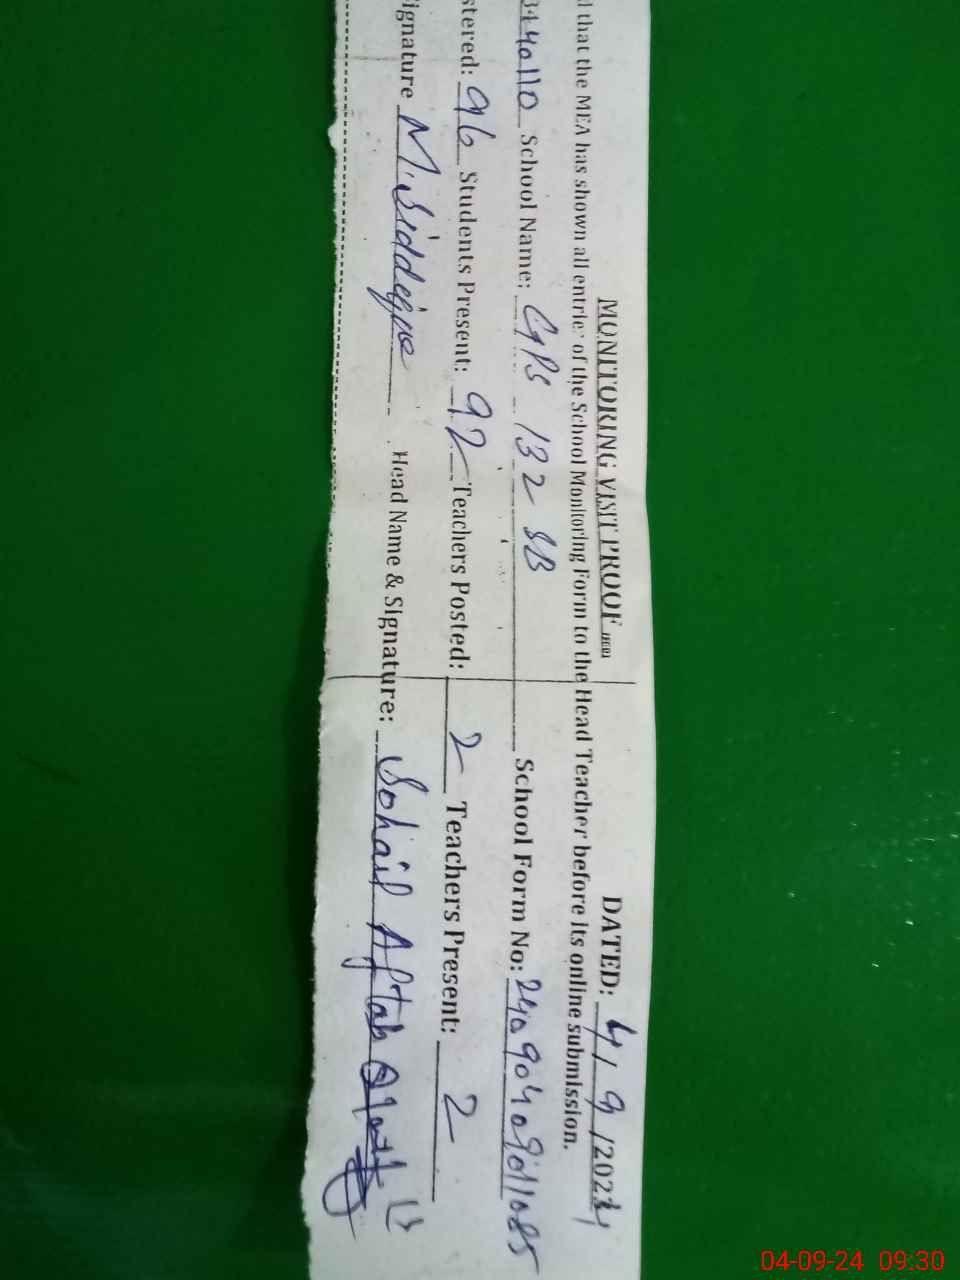 MONITORING VISIT PROOF DATED: 4/9/2024
that the MEA has shown all entries of the School Monitoring Form to the Head Teacher before its online submission.
School Name: GPS 132 SB School Form No:
stered: 96 Students Present: 92 Teachers Posted: 2 Teachers Present: 2
ignature M. Siddique Head Name & Signature: Sohail Aftab
04-09-24 09:30